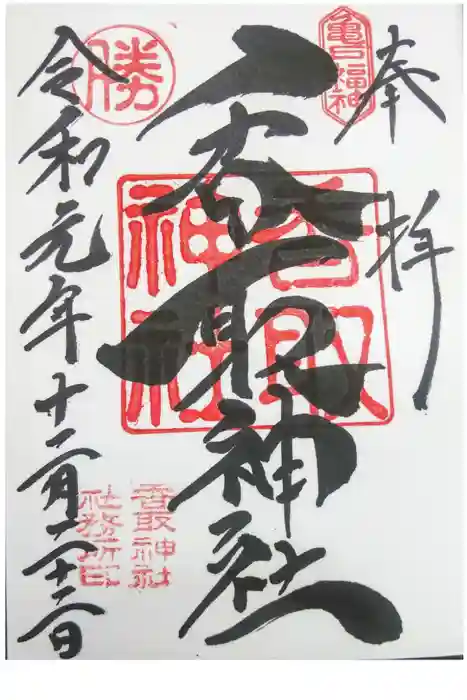 奉拝
亀戸福神
香取神社
香取神社
勝
令和元年十二月二十二日
香取神社
社務所印